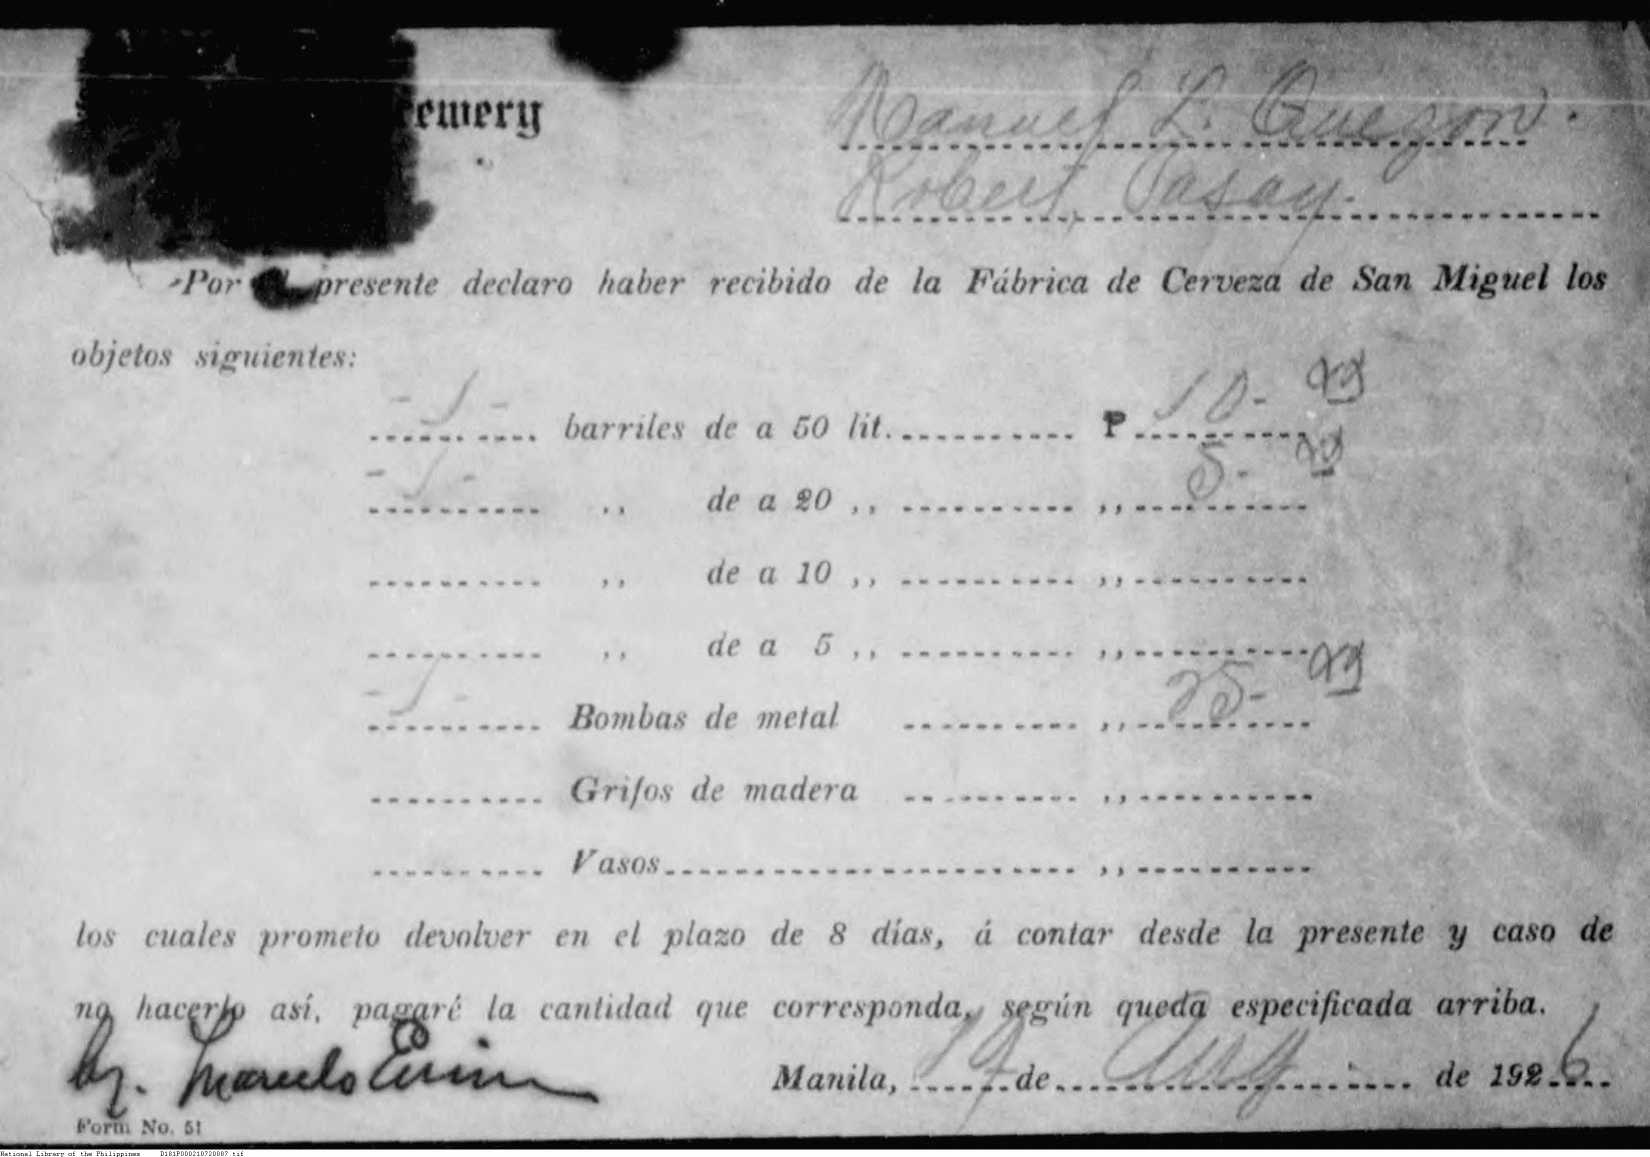 rewery
Manuel L. Quezon.
Robert, Pasay.
Por presente declaro haber recibido de la Fábrica de Cerveza de San Miguel los
objetos siguientes:
-1- barriles de a 50 lit. ₱ 10- xx
-1- ,, de a 20 ,, ,, 5- xx
,, de a 10 ,, ,,
,, de a 5 ,, ,,
-1- Bombas de metal ,, 25- xx
Grifos de madera ,,
Vasos ,,
los cuales prometo devolver en el plazo de 8 días, á contar desde la presente y caso de
no hacerlo así, pagaré la cantidad que corresponda, según queda especificada arriba.
by. Marcelo
Manila, 17 de Aug. de 1926
Form No. 51
National Library of the Philippines D181P000210720007.tif